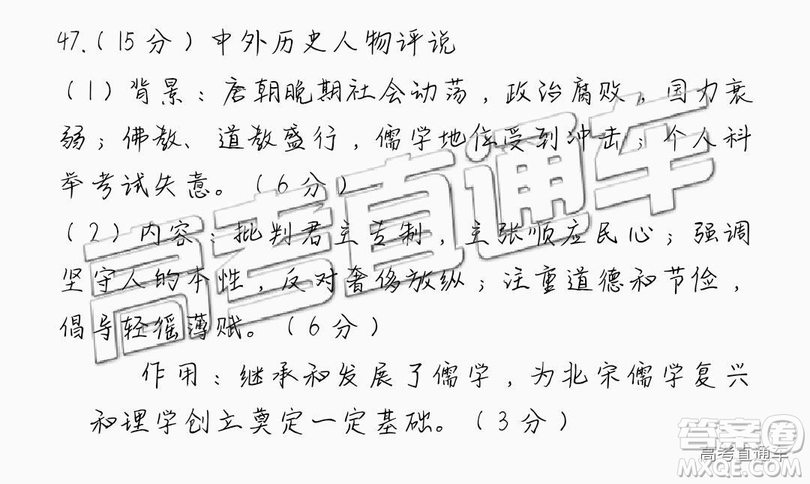 47.(15分)中外历史人物评说
(1)背景:唐朝晚期社会动荡,政治腐败,国力衰
弱;佛教、道教盛行,儒学地位受到冲击;个人科
举考试失意。(6分)
(2)内容:批判君主专制,主张顺应民心;强调
坚守人的本性,反对奢侈放纵;注重道德和节俭,
倡导轻徭薄赋。(6分)
作用:继承和发展了儒学,为北宋儒学复兴
和理学创立奠定一定基础。(3分)
高考直通车
答案圈
高考直通车
MXQE.COM